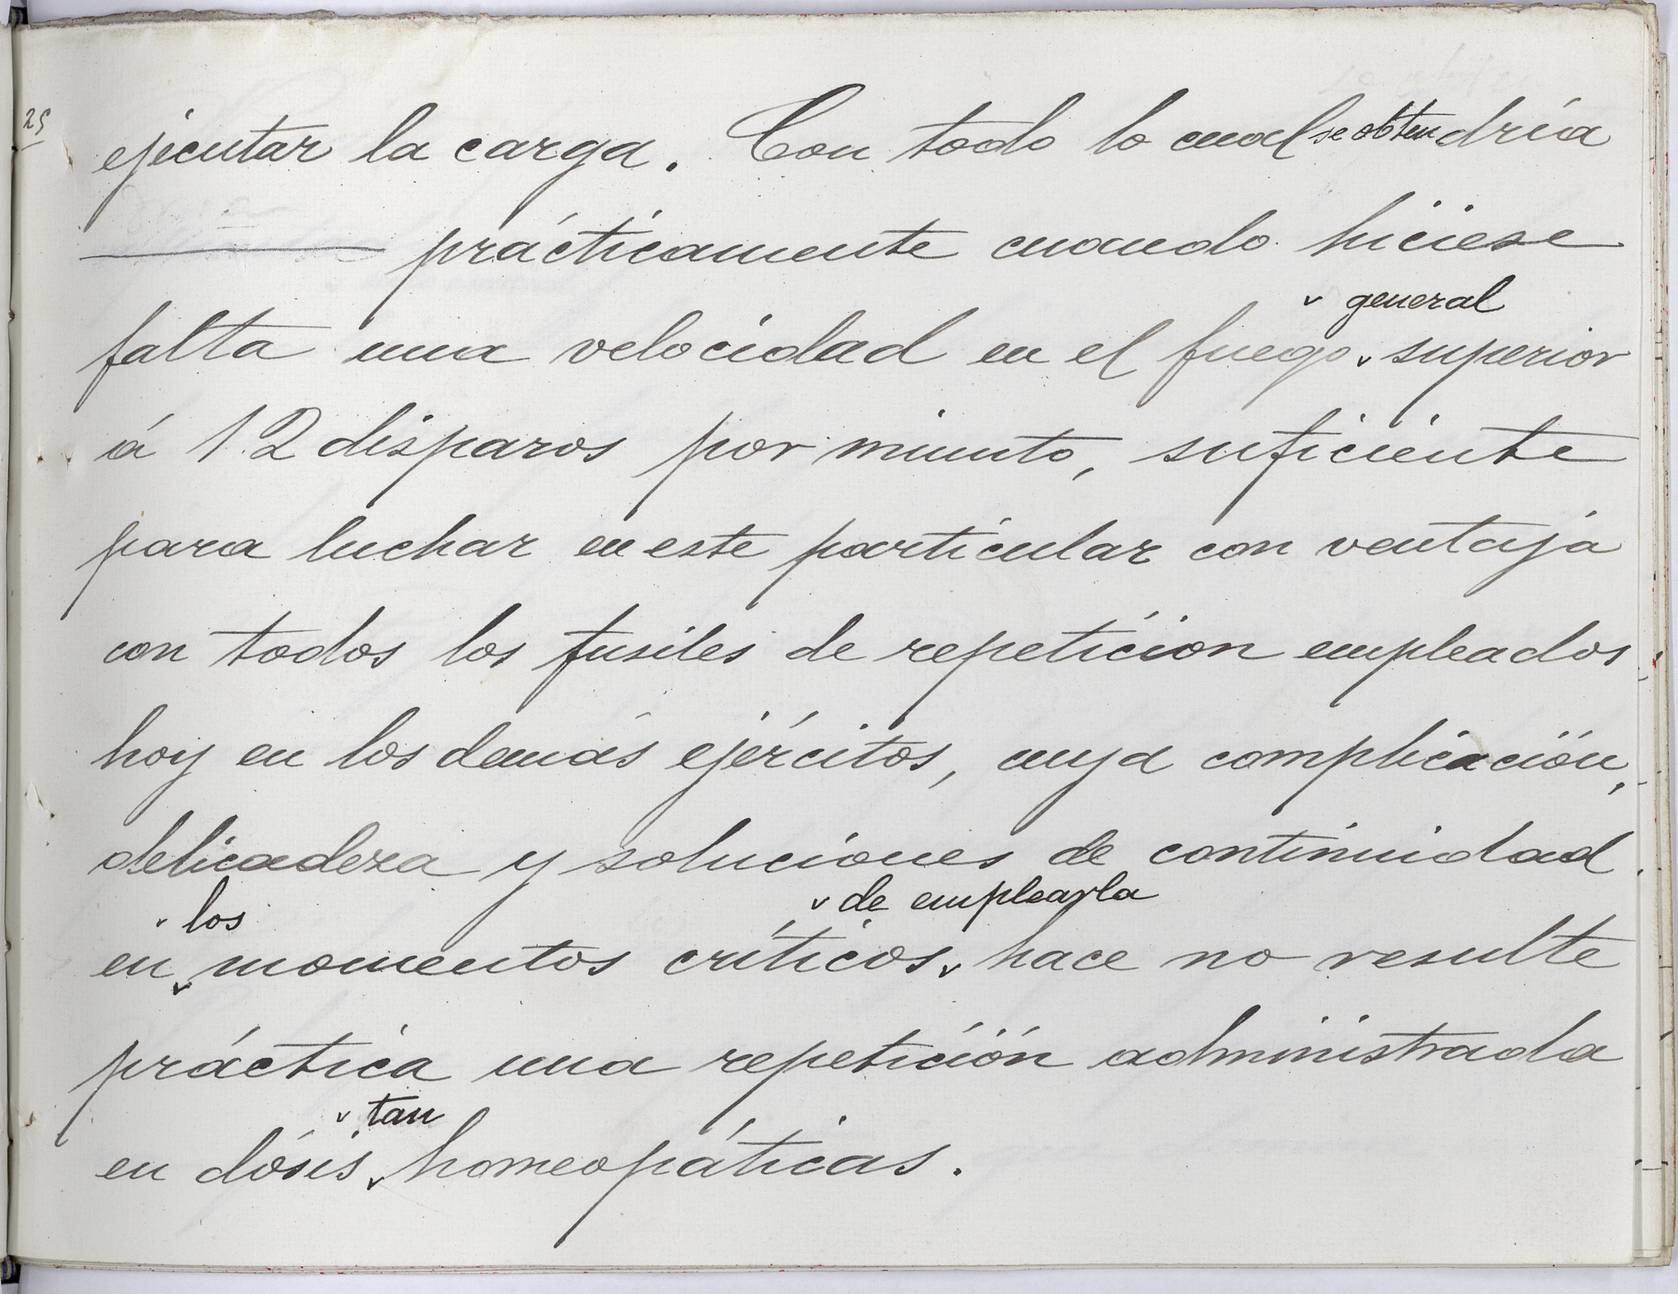 25
ejecutar la carga. Con todo lo cual se obtendría
prácticamente cuando hiciese
general
falta una velocidad en el fuego superior
á 12 disparos por minuto, suficiente
para luchar en este particular con ventaja
con todos los fusiles de repeticion empleados
hoy en los demás ejércitos, cuya complicación,
delicadeza y soluciones de continuidad
los de emplearla
en momentos críticos hace no resulte
práctica una repetición administrada
tan
en dósis homeopáticas.